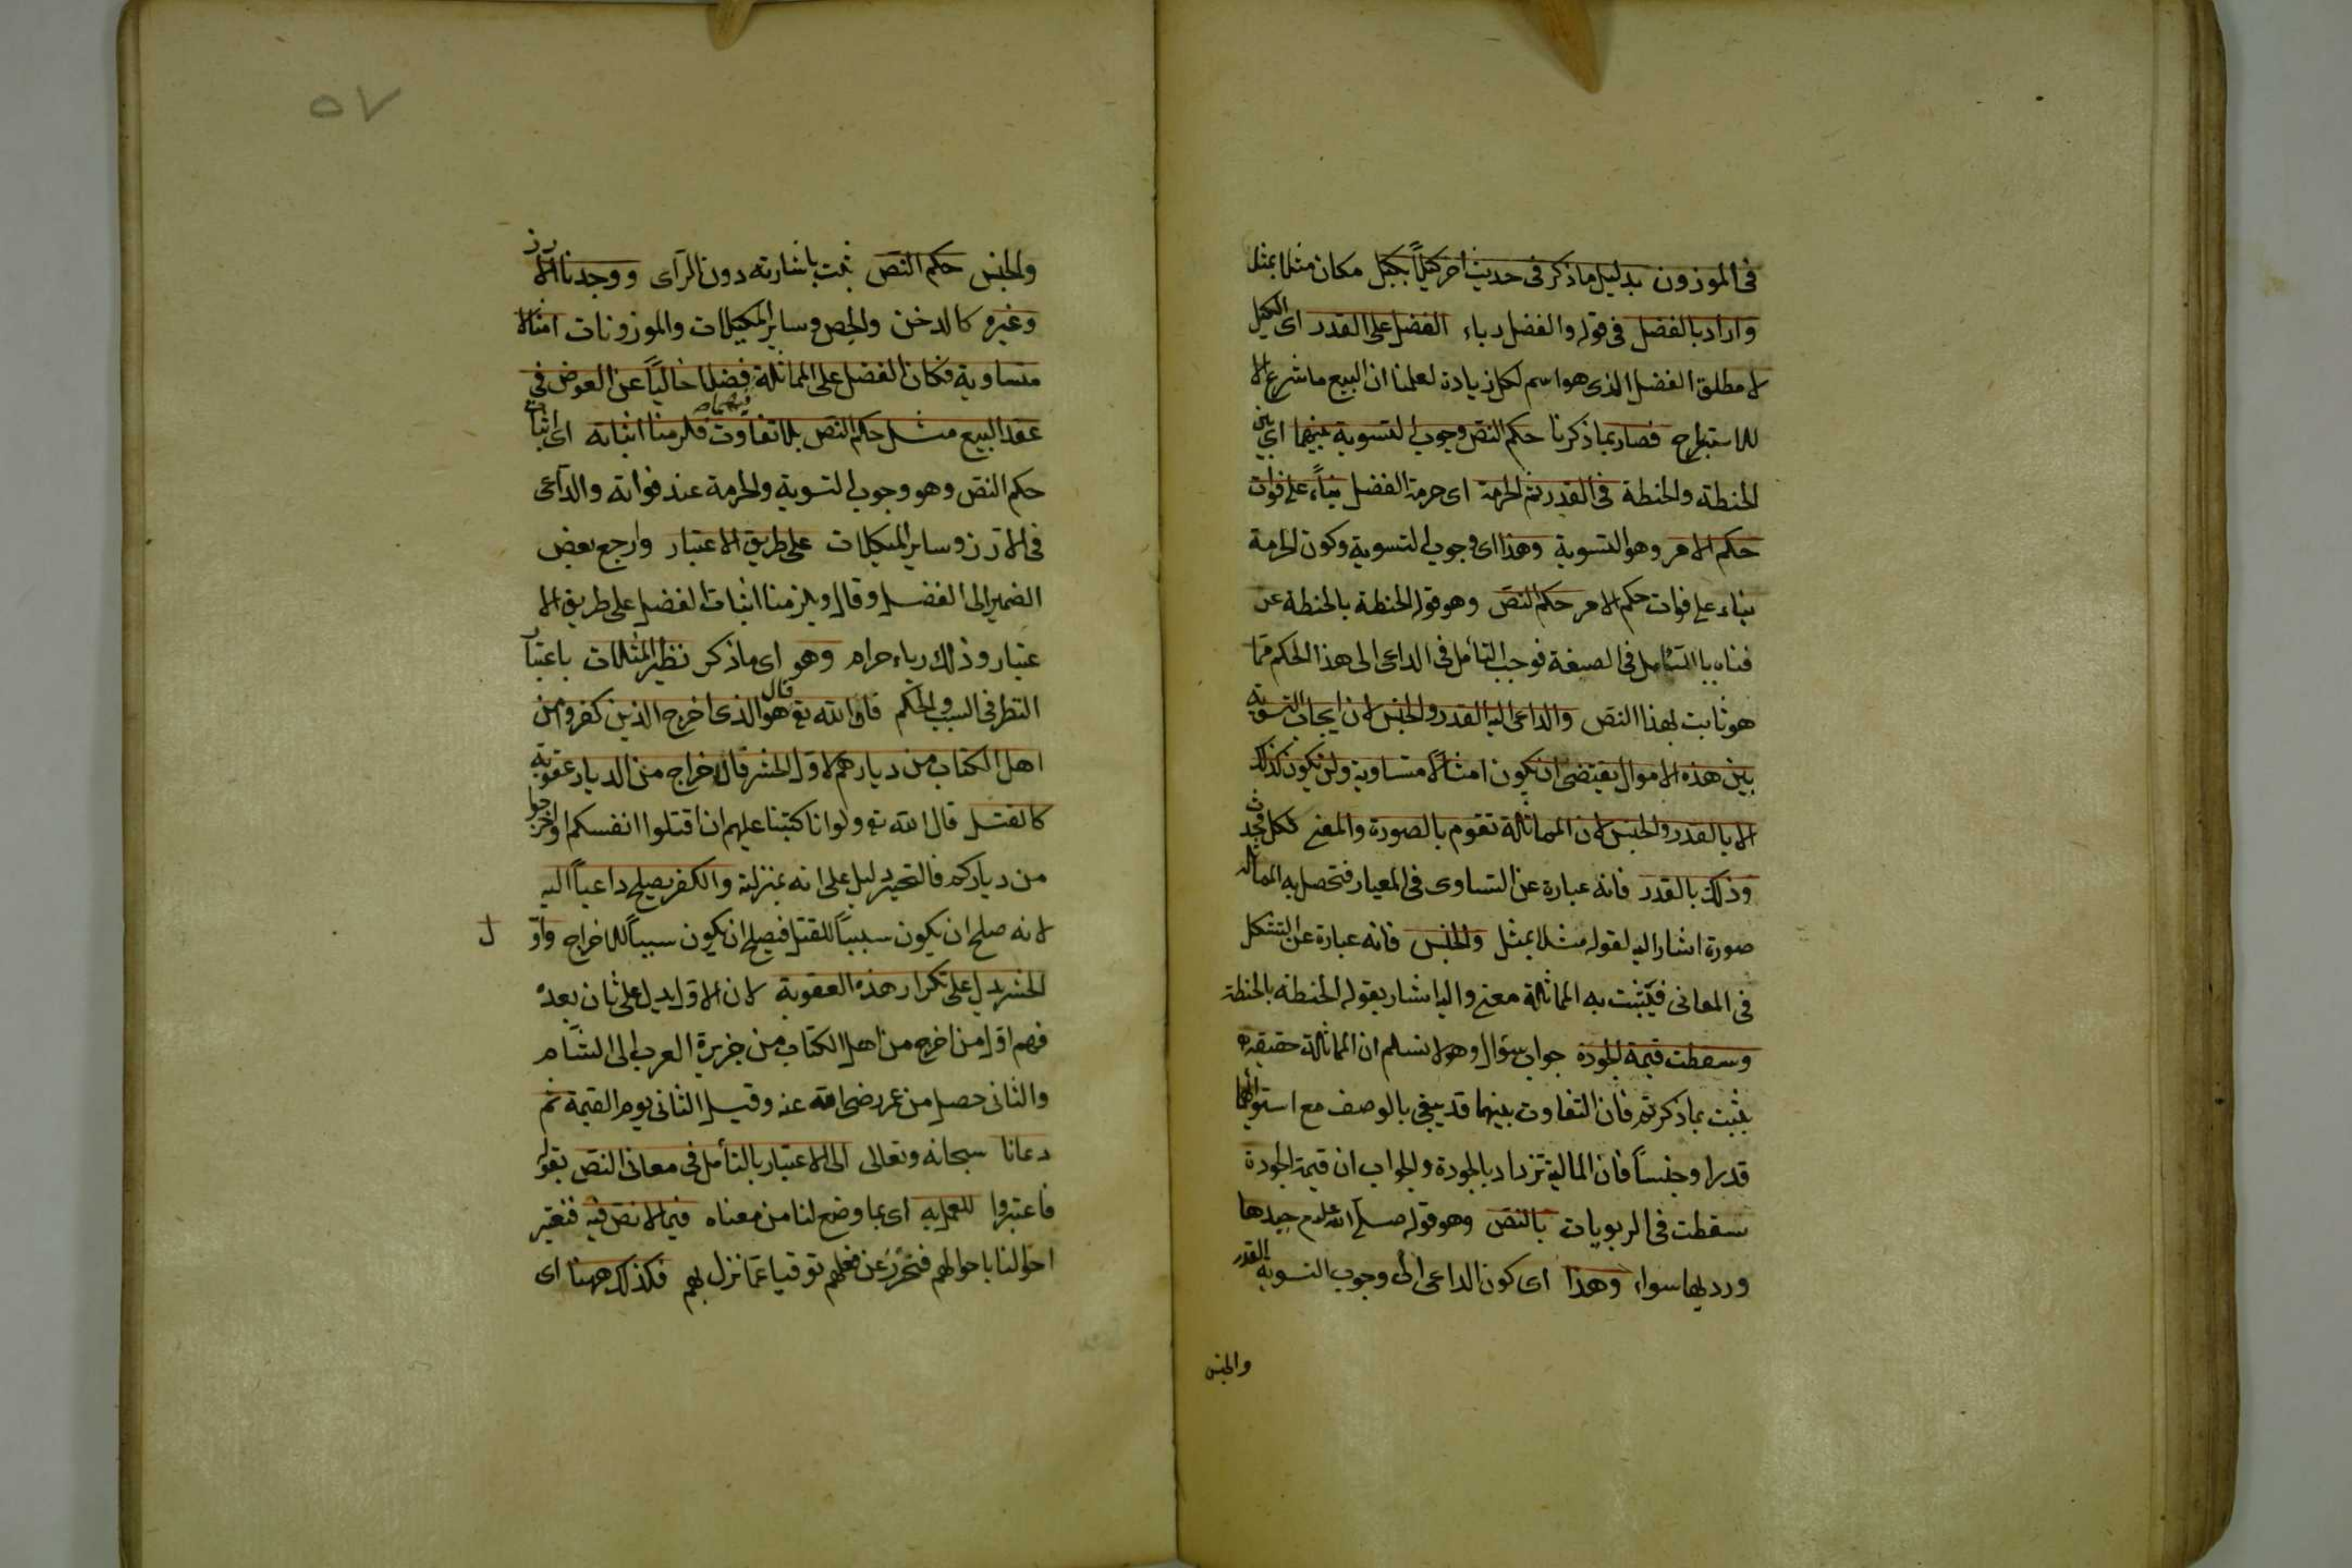 فى الموزون بدليل ما ذكر فى حديث اخر كيلاً بكيل مكان مثلا بمثل
واراد بالفضل فى قوله والفضل رباء الفضل على القدر اى الكيل
لا مطلق الفضل الذى هو اسم لكل زيادة لعلمنا ان البيع ما شرع الا
للاسترباح فصار بما ذكرنا حكم النص وجوب التسوية بينهما اى بين
الحنطة والحنطة فى القدر ثم الحرمة اى حرمة الفضل بناءً على فوات
حكم الامر وهو التسوية وهذا اى وجوب التسوية وكون الحرمة
بناء على فوات حكم الامر حكم النص وهو قوله الحنطة بالحنطة عر
فناه بالتأمل فى الصيغة فوجب التأمل فى الداعى الى هذا الحكم مما
هو ثابت بهذا النص والداعى اليه القدر والجنس لان ايجاب التسوية
بين هذه الاموال يقتضى ان يكون امثالاً متساوية ولن يكون كذلك
الا بالقدر والجنس لان المماثلة تقوم بالصورة والمعنى لكل محدث
وذلك بالقدر فانه عبارة عن التساوى فى المعيار فتحصل به المماثلة
صورة اشار اليه لقوله مثلا بمثل والجنس فانه عبارة عن التشاكل
فى المعانى فيثبت به المماثلة معنى واليه اشار بقوله الحنطة بالحنطة
وسقطت قيمة الجودة جواب سؤال وهو لا نسلم ان المماثلة حقيقة
يثبت بما ذكرتم فان التفاوت بينهما قد يبقى بالوصف مع استوائهما
قدرا وجنساً فان المالية تزداد بالجودة والجواب ان قيمة الجودة
سقطت فى الربويات بالنص وهو قوله صلى الله عليه وسلم جيدها
ورديها سواء وهذا اى كون الداعى الى وجوب التسوية القدر
والجنس
٥٧
والجنس حكم النص ثبت باشارته دون الرآى ووجدنا الارز
وغيره كالدخن والجص وساير المكيلات والموزونات امثالا
متساوية فكان الفضل على المماثلة فيهما فضلا خالياً عن العوض فى
عقد البيع مثل حكم النص بلا تفاوت فلزمنا اثباته اى اثبات
حكم النص وهو وجوب التسوية والحرمة عند فواته والداعى
فى الارز وساير المكيلات على طريق الاعتبار وارجع بعض
الضمير الى الفضل وقال ويلزمنا اثبات الفضل على طريق الا
عتبار وذلك رباء حرام وهو اى ما ذكر نظير المثلات باعتبار
النظر فى السبب والحكم فان الله تع قال هو الذى اخرج الذين كفروا من
اهل الكتاب من ديارهم لاول الحشر فالاخراج من الديار عقوبة
كالقتل قال الله تع ولو انا كتبنا عليهم ان اقتلوا انفسكم او اخرجوا
من دياركم فالتخيير دليل على انه بمنزلته والكفر يصلح داعياً اليه
لانه صلح ان يكون سبباً للقتل فيصلح ان يكون سبباً للاخراج واو ل
الحشر يدل على تكرار هذه العقوبة لان الاول يدل على ثان بعده
فهم اول من اخرج من اهل الكتاب من جزيرة العرب الى الشام
والثانى حصل من عمر رضى الله عنه وقيل الثانى يوم القيمة ثم
دعانا سبحانه وتعالى الى الاعتبار بالتأمل فى معانى النص بقوله
فاعتبروا للعمل به اى بما وضع لنا من معناه فيما لا نص فيه فنعتبر
احوالنا باحوالهم فنحترز عن فعلهم توقيا عما نزل بهم فكذلك ههنا اى